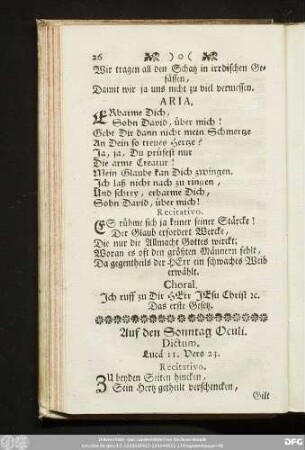 26 )o(
Wir tragen all den Schatz in irrdischen Ge-
fässen,
Damit wir ja uns nicht zu viel vermessen.
ARIA.
ERbarme Dich,
Sohn David, über mich!
Geht Dir dann nicht mein Schmertze
An Dein so treues Hertze?
Ja, ja, Du prüfest nur
Die arme Creatur!
Mein Glaube kan Dich zwingen.
Ich laß nicht nach zu ringen,
Und schrey, erbarme Dich,
Sohn David, über mich!
Recitativo.
ES rühme sich ja keiner seiner Stärcke!
Der Glaub erfordert Wercke,
Die nur die Allmacht Gottes wirckt;
Woran es oft den größten Männern fehlt,
Da gegentheils der HErr ein schwaches Weib
erwählt.
Choral.
Ich ruff zu Dir HErr JEsu Christ ꝛc.
Das erste Gesetz.
Auf den Sonntag Oculi.
Dictum.
Lucä 11. Vers 23.
Recitativo.
ZU beyden Seiten hincken,
Sein Hertz getheilt verschencken,
Gilt